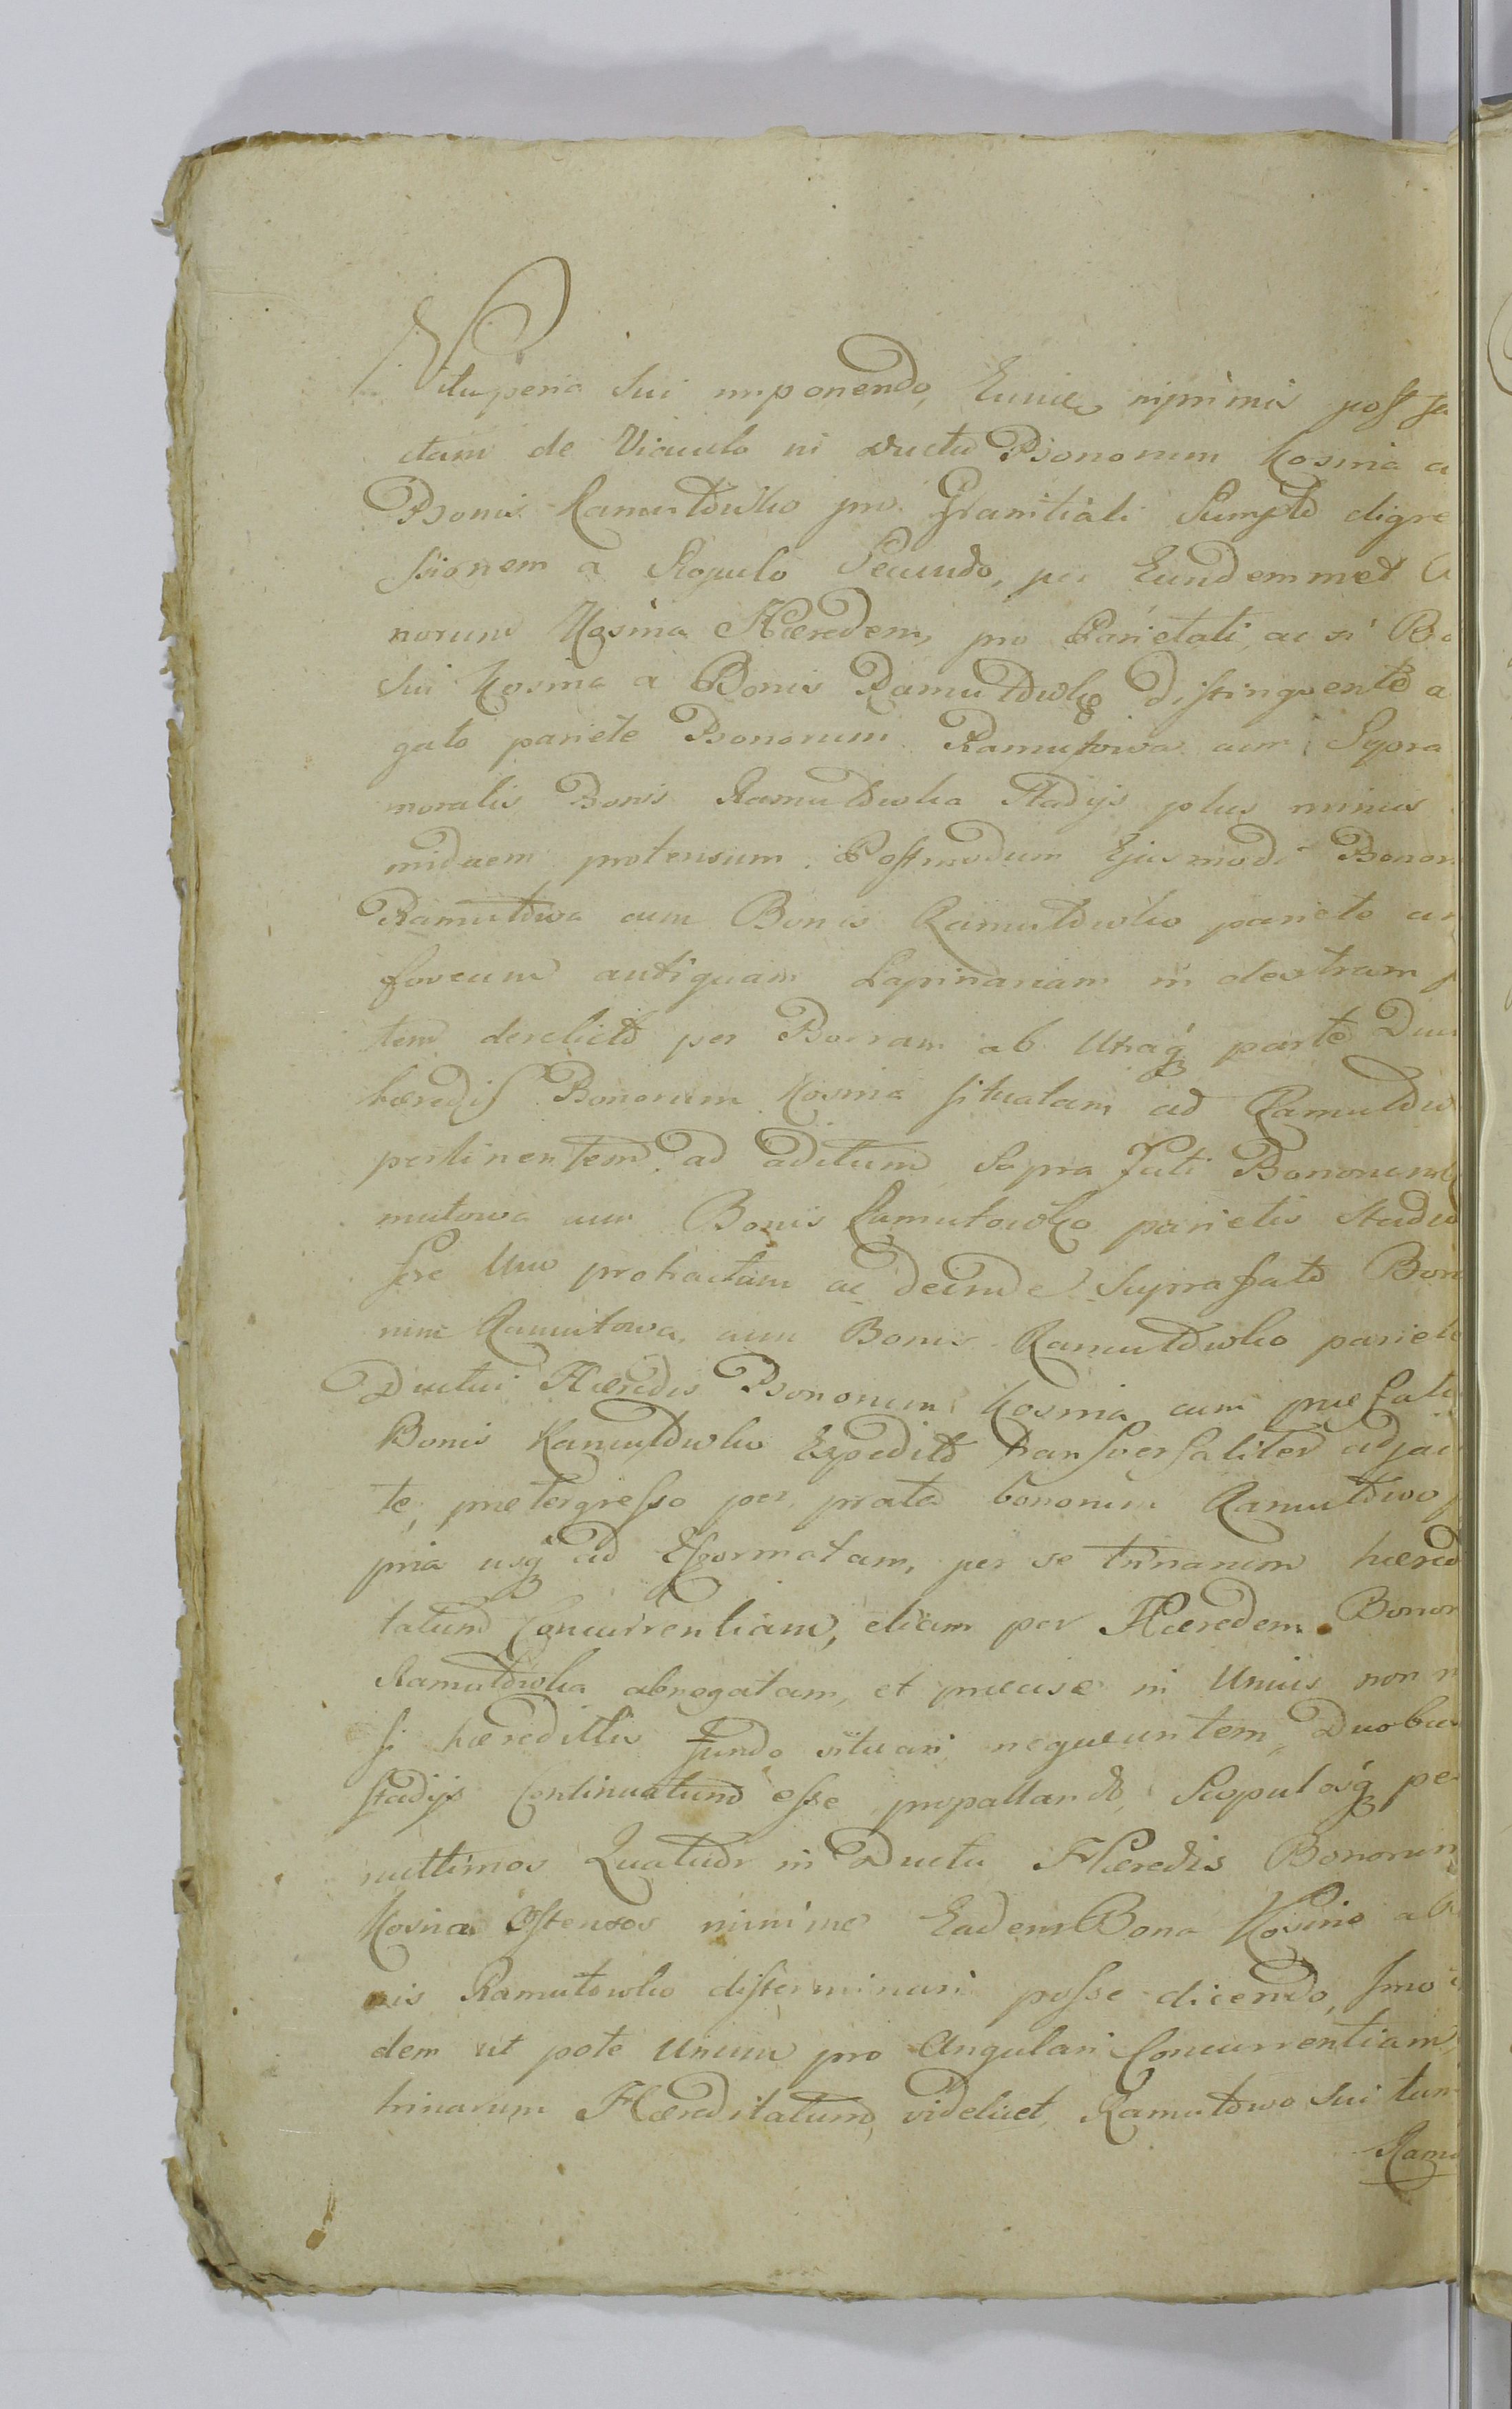 Vituperia Sui imponendo, Eunice inprimis post fa
ctam de Viculo in ductu Bonorum Kosinia a
Bonis Ramutówko pro Granitiali Sumpto digre
ssionem a Scopulo Secundo, per Eundemmet
norum Kosinia Hæredem, pro Parietali, ac si Bo
Sui Kosinia a Bonis Ramutówko Distingvente a
gato pariete Bonorum Ramutowa cum Supra
moralis Bonis Ramutówka Stadijs plus minus
protensum. Postmodum Ejusmodi Bonor
Ramutówa cum Bonis Ramutówko pariete
foveam antiquam Lapinariam in dextram p
tem derelicto per Borram ab Utraq parte Duc
hæredis Bonorum Kosinia situatam ad Ramutów
pertinentem ad aditum Supra fati Bonorum
mutowa cum Bonis Ramutowko parietis Stadio
fere Uno protractam ac deinde Suprafato Bon
rum Ramutowa, cum Bonis Ramutówko pariete
Ductui Hæredis Bonorum Kosinia cum præfati
Bonis Ramutówko Expedito transversaliter adjacen
te, prætergresso per prata bonorum Ramutówo
pria usq ad Efformatam, per se trinarum hæred
tatum Concurrentiam, etiam per Hæredem Bonor
Ramutówka abnegatam, et præcise in Unius non n
si hæreditis fundo situari nequeuntem, Duobus
stadijs Continuatum esse propallando, Scopulosq pe
nultimos Quatuor in Ductu Hæredis Bonorum
Kosinia Ostensos minime Eadem Bona Kosinia a
nis Ramutowko disterminari posse dicendo, Imo
dem ut pote Unum pro Angulari Concurrentiam
trinarum Hæreditatum, videlicet Ramutówo Sui tum
Ramu